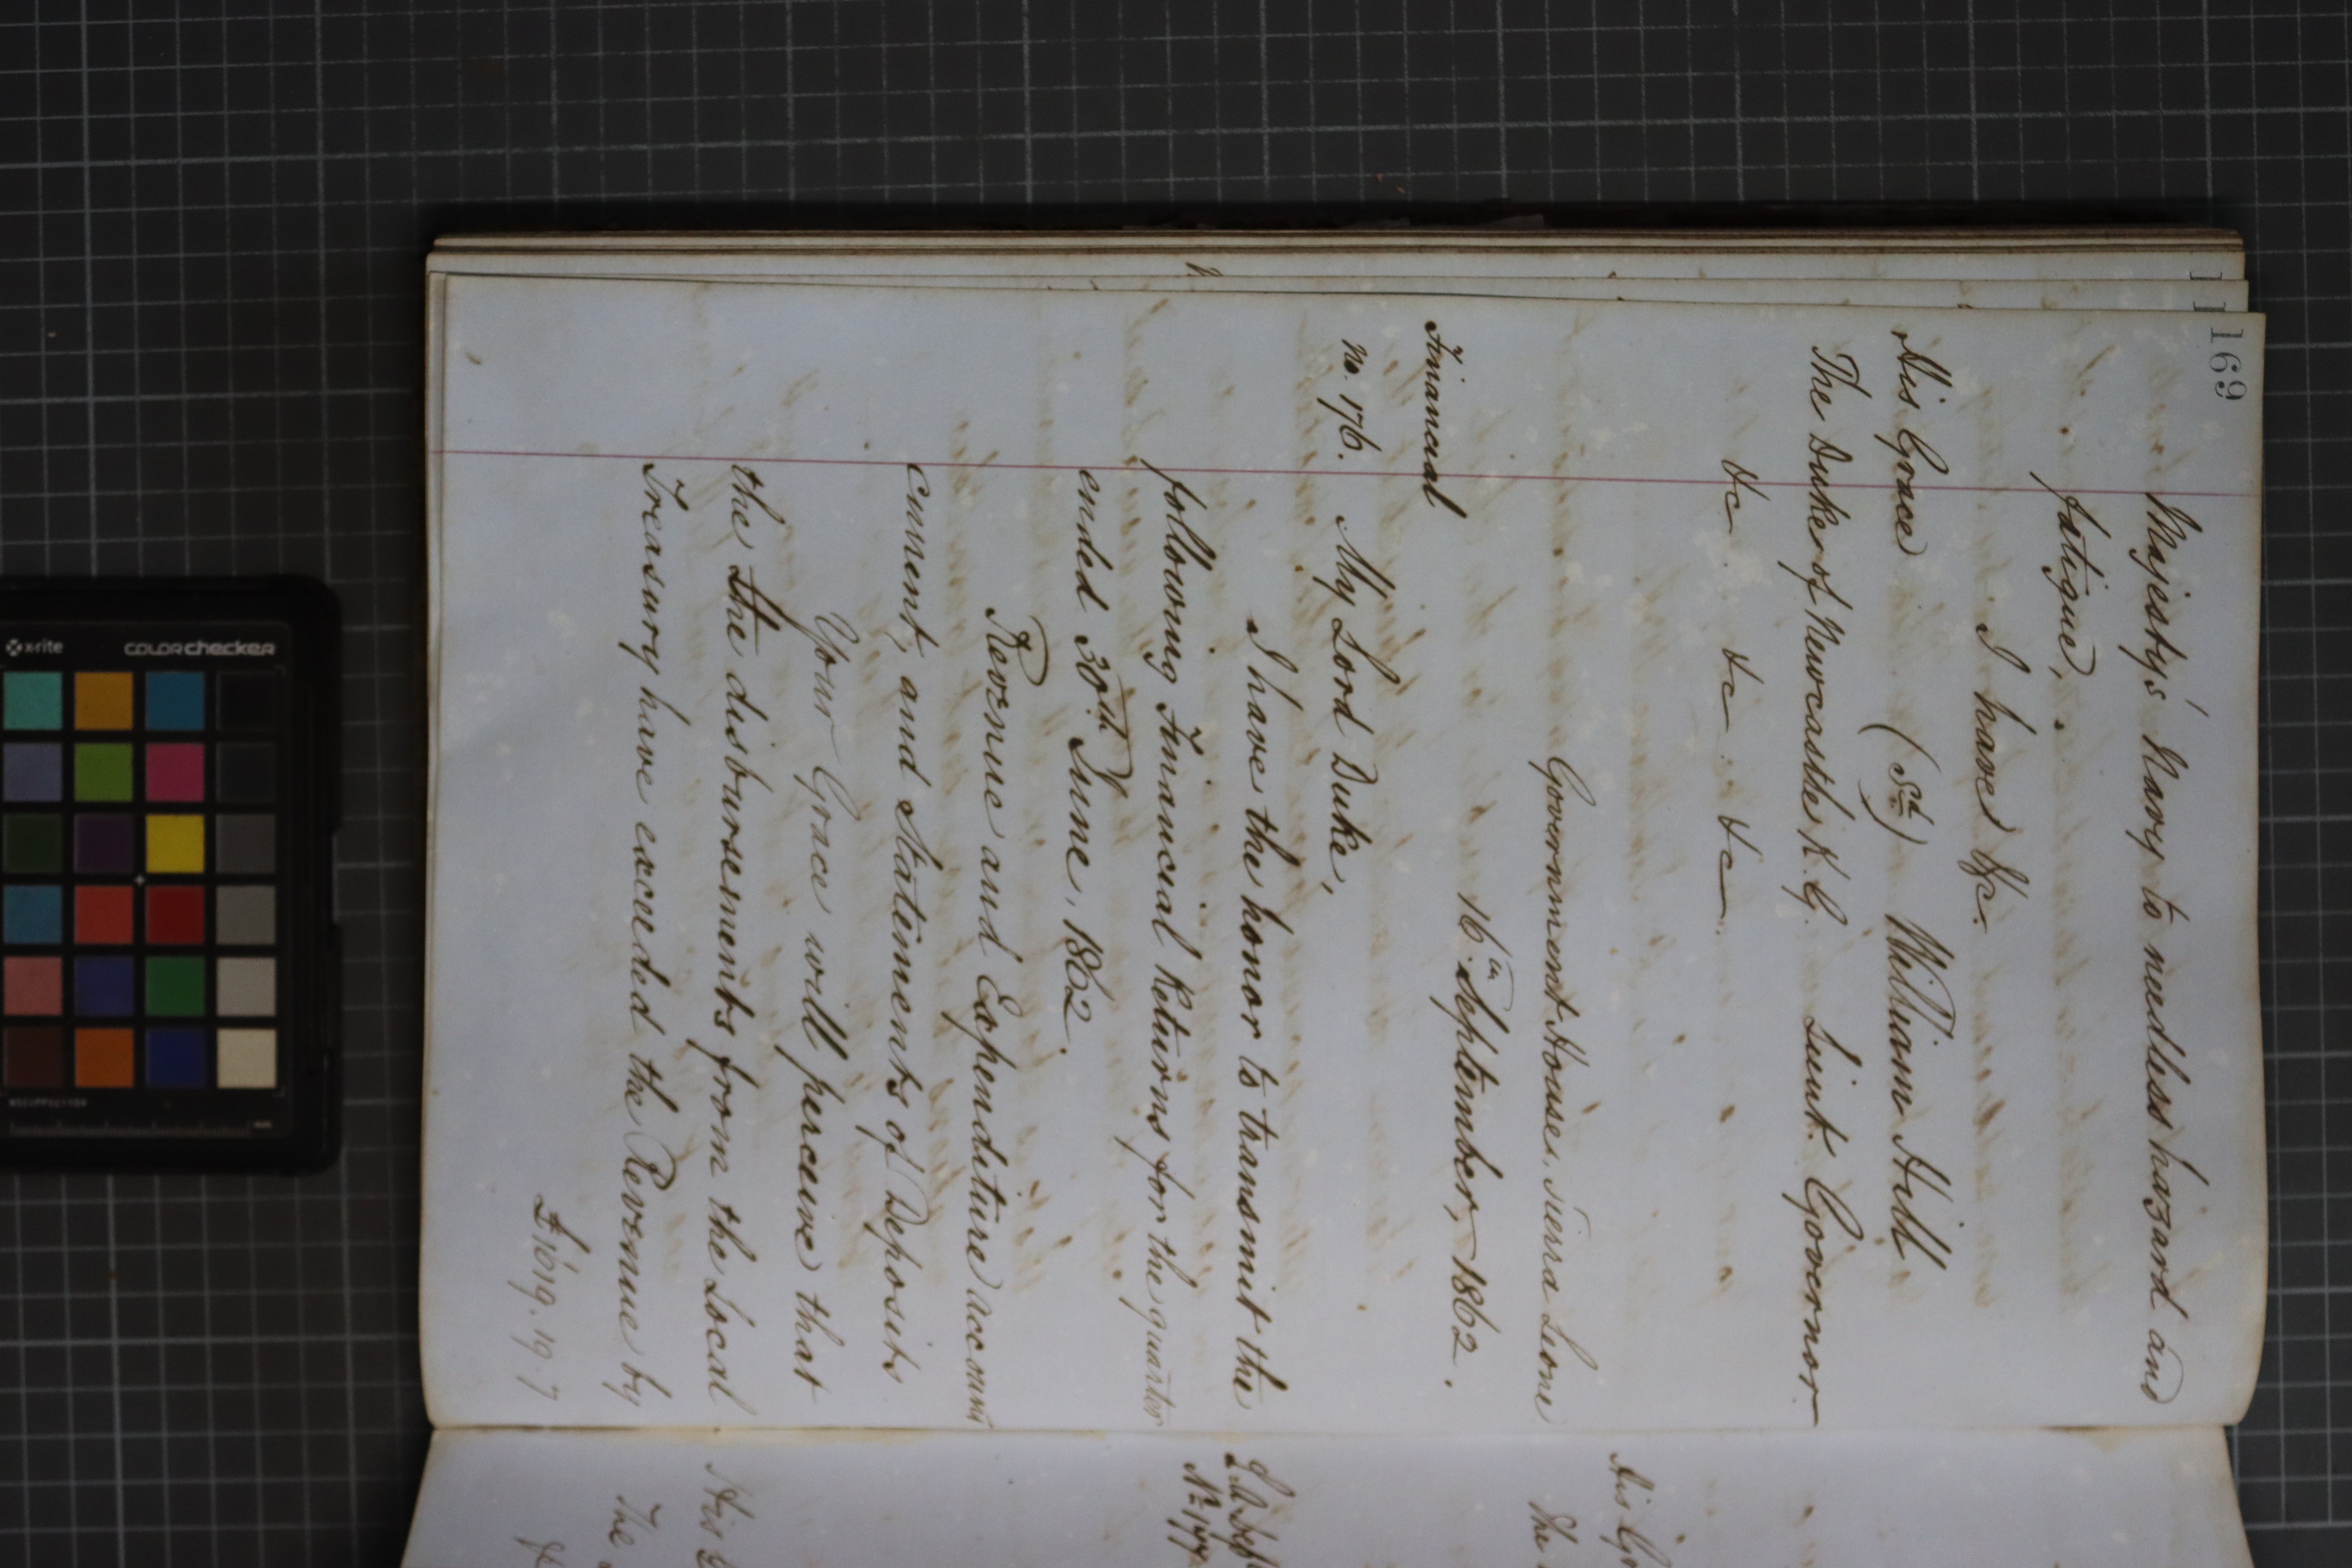 169
Majesty's Navy to needless hazard and
fatigue,
I have &c.
His Grace (Sd.) William Hill
The Duke of Newcastle K.G. Lieut. Governor
&c. &c. &c.
Government House, Sierra Leone
16th September, 1862.
Financial
No. 176. My Lord Duke,
I have the honor to transmit the
following Financial Returns for the quarter
ended 30th June, 1862.
Revenue and Expenditure account
current, and Statements of Deposits
Your Grace will perceive that
the the disbursements from the Local
Treasury have exceeded the Revenue by
£1619.19.7
His
The
No. 177
His
The
x-rite colorchecker